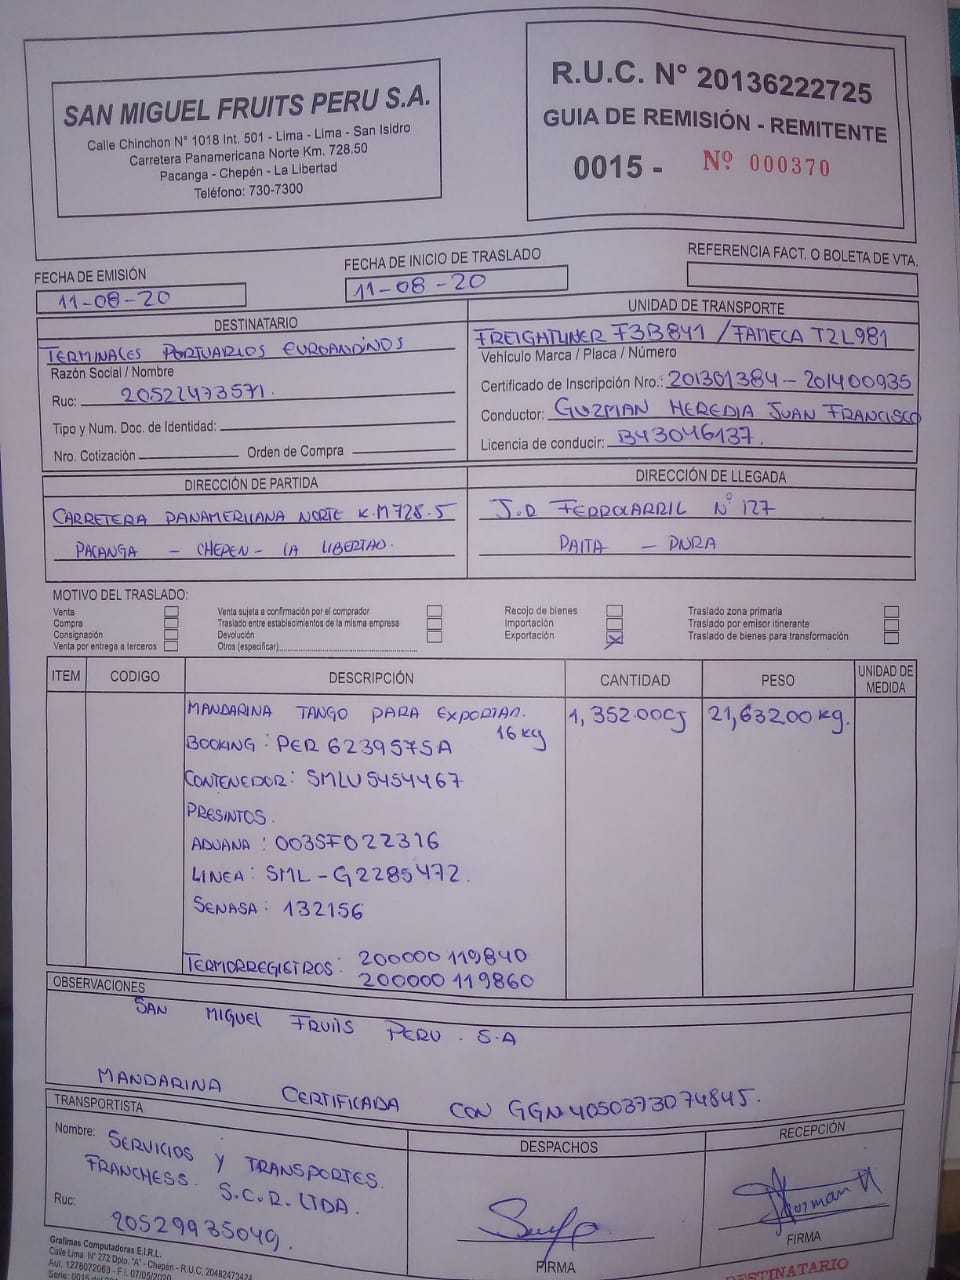 SAN MIGUEL FRUITS PERU S.A.
Calle Chinchon N° 1018 Int. 501 - Lima - Lima - San Isidro
Carretera Panamericana Norte Km. 728.50
Pacanga - Chepén - La Libertad
Teléfono: 730-7300
R.U.C. N° 20136222725
GUIA DE REMISIÓN - REMITENTE
0015 - Nº 000370
FECHA DE EMISIÓN
11-08-20
FECHA DE INICIO DE TRASLADO
11-08-20
REFERENCIA FACT. O BOLETA DE VTA.
DESTINATARIO
TERMINALES PORTUARIOS EUROANDINOS
Razón Social / Nombre
Ruc: 20522473571.
Tipo y Num. Doc. de Identidad:
Nro. Cotización Orden de Compra
UNIDAD DE TRANSPORTE
FREIGHTLINER F3B841 / FAMECA T2L981
Vehículo Marca / Placa / Número
Certificado de Inscripción Nro.: 201301384 - 201400935
Conductor: GUZMAN HEREDIA JUAN FRANCISCO
Licencia de conducir: B43046137.
DIRECCIÓN DE PARTIDA
CARRETERA PANAMERICANA NORTE K.M 728.5
PACANGA - CHEPEN - LA LIBERTAD.
DIRECCIÓN DE LLEGADA
J.R FERROCARRIL N° 127
PAITA - PIURA
MOTIVO DEL TRASLADO:
Venta
Compra
Consignación
Venta por entrega a terceros
Venta sujeta a confirmación por el comprador
Traslado entre establecimientos de la misma empresa
Devolución
Otros (especificar)
Recojo de bienes
Importación
Exportación X
Traslado zona primaria
Traslado por emisor itinerante
Traslado de bienes para transformación
ITEM CODIGO DESCRIPCIÓN CANTIDAD PESO UNIDAD DE MEDIDA
MANDARINA TANGO PARA EXPORTAR. 1,352.00CJ 21,632.00 kg.
16 kg
BOOKING: PER 6239575A
CONTENEDOR: SMLU 5454467
PRESINTOS.
ADUANA: 003SF022316
LINEA: SML - G2285472.
SENASA: 132156
TERMORREGISTROS: 200000119840
200000119860
OBSERVACIONES
SAN MIGUEL FRUITS PERU. S.A
MANDARINA CERTIFICADA CON GGN 4050373074845.
TRANSPORTISTA
Nombre: SERVICIOS Y TRANSPORTES
FRANCHESS. S.C.R. LTDA.
Ruc: 20529935049.
DESPACHOS
FIRMA
RECEPCIÓN
FIRMA
Grafimas Computadoras E.I.R.L.
Calle Lima N° 272 Dpto. "A" - Chepén - R.U.C. 20482473424
Aut. 1278072063 - F.I. 07/05/2020
Serie: 0015 del
DESTINATARIO